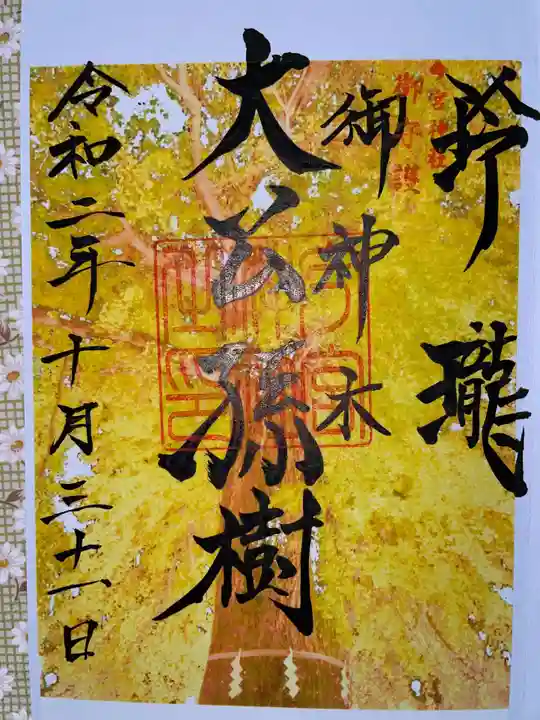 今宮神社
御守護
玲瓏
御神木
大公孫樹
令和二年十月三十一日